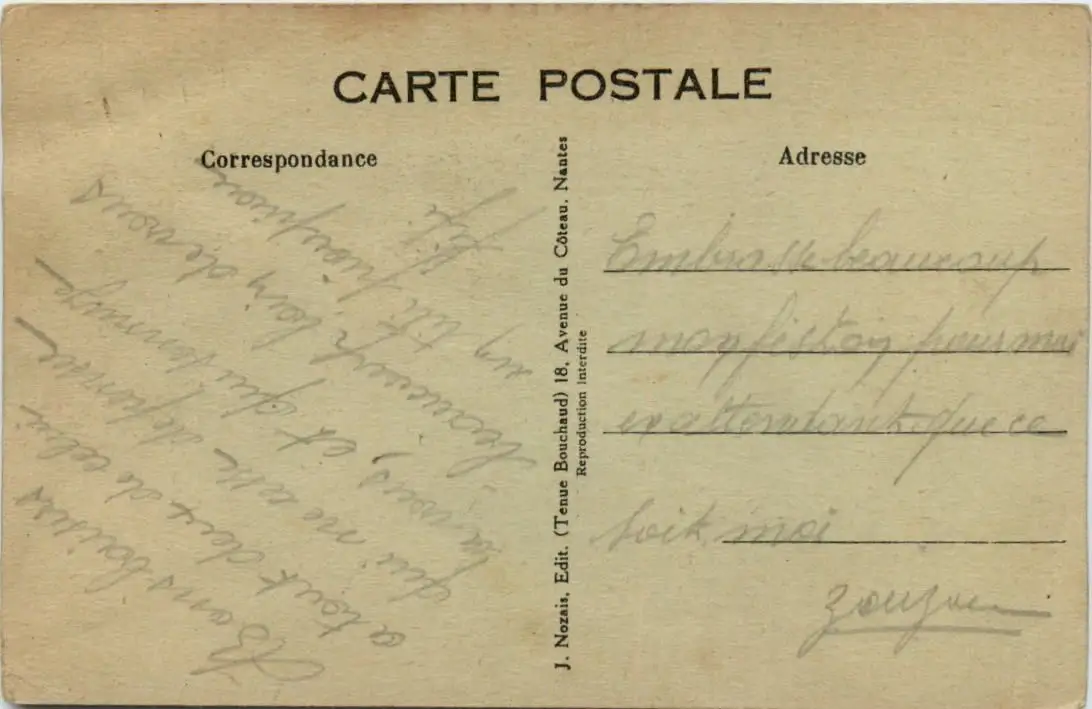 CARTE POSTALE
Correspondance
Bons baisers
a tout deux de celui
qui ne cesse de penser
à vous, et qui
beaucoup loin de vous
un
J. Nozais, Edit. (Tenue Bouchaud) 18, Avenue du Côteau, Nantes
Reproduction Interdite
Adresse
Embrasse beaucoup
mon fiston pour moi
en attendant que ce
soit moi